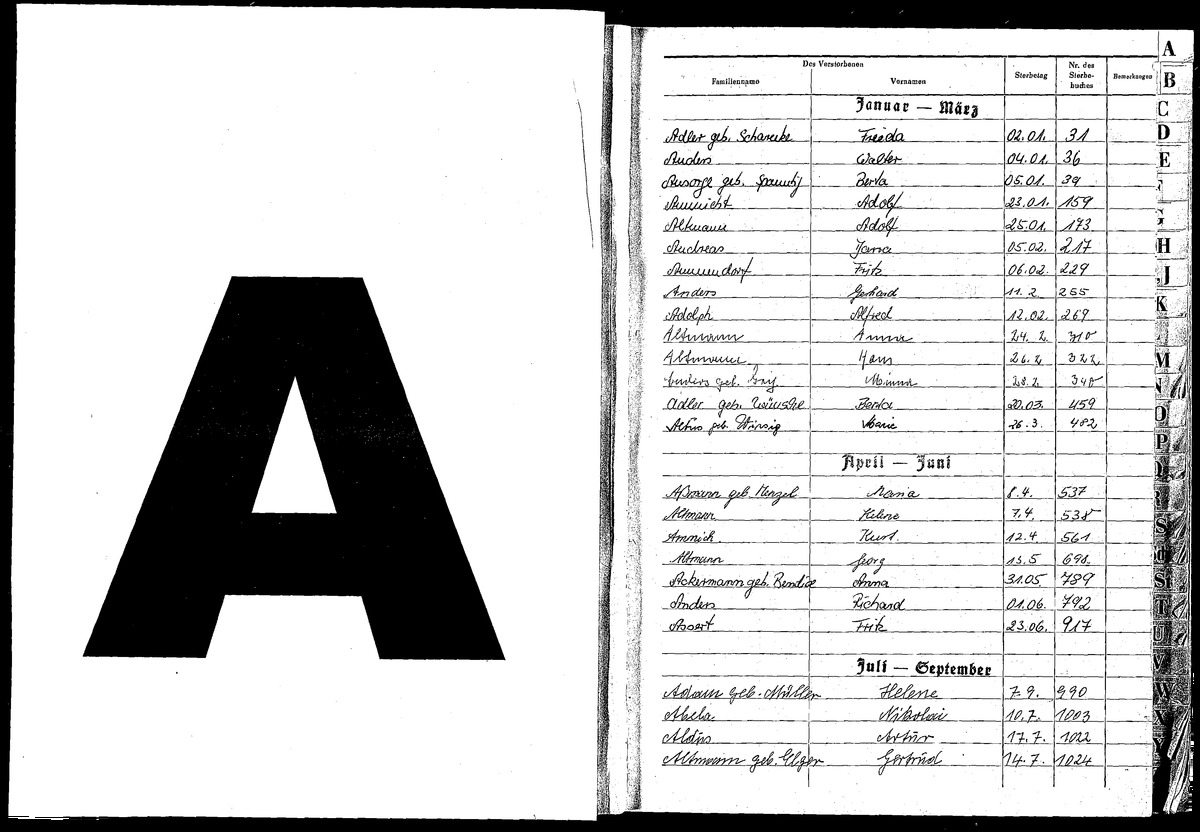 A
Des Verstorbenen
Familienname Vornamen Sterbetag Nr. des Sterbebuches Bemerkungen
Januar — März
Adler geb. Frieda 02.01. 31
Anders Walter 04.01. 36
Ansorge geb. Berta 05.01. 39
Adolf 23.01. 159
Altmann Adolf 25.01. 173
Andreas 05.02. 217
Ammendorf Fritz 06.02. 229
Anders Gerhard 11.2. 255
Adolph Alfred 12.02. 269
Altmann Anna 24.2. 310
Altmann Hans 26.2. 322
Anders geb. Minna 28.2. 340
Adler geb. Berta 20.03. 459
geb. Marie 26.3. 482
April — Juni
Aßmann geb. Menzel Maria 8.4. 537
Altmann Helene 7.4. 538
Amnich Kurt 12.4. 561
Altmann Georg 15.5 698
Ackermann geb. Bendix Anna 31.05 789
Anders Richard 01.06. 792
Assert Fritz 23.06. 917
Juli — September
Adam geb. Müller Helene 7.9. 990
Abela Nikolai 10.7. 1003
Artur 17.7. 1022
Altmann geb. Elger Gertrud 14.7. 1024
A
B
C
D
E
G
H
J
K
M
N
O
P
S
St
T
U
V
W
X
Y